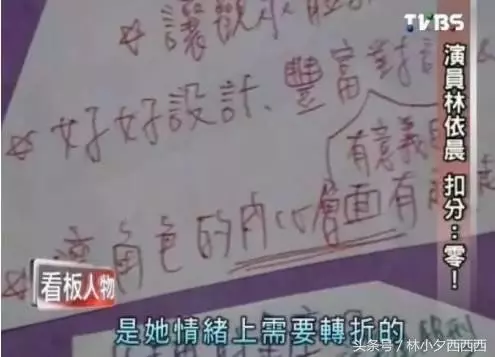 TVBS
☆ 讓觀眾
☆ 好好設計、豐富對
有意義
☆ 讓角色的內心層面有
演員林依晨 扣分：零！
看板人物
是她情緒上需要轉折的
头条号 / 林小夕西西西